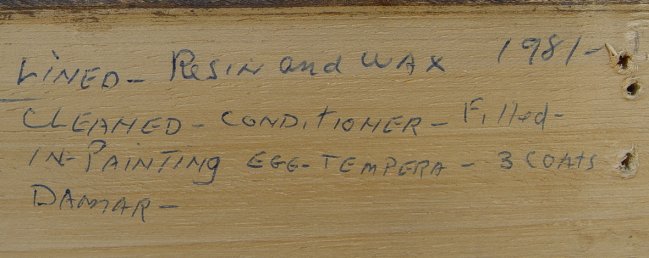 LINED - RESIN and WAX 1981 -
CLEANED - CONDITIONER - Filled -
IN-PAINTING EGG-TEMPERA - 3 COATS
DAMMAR -